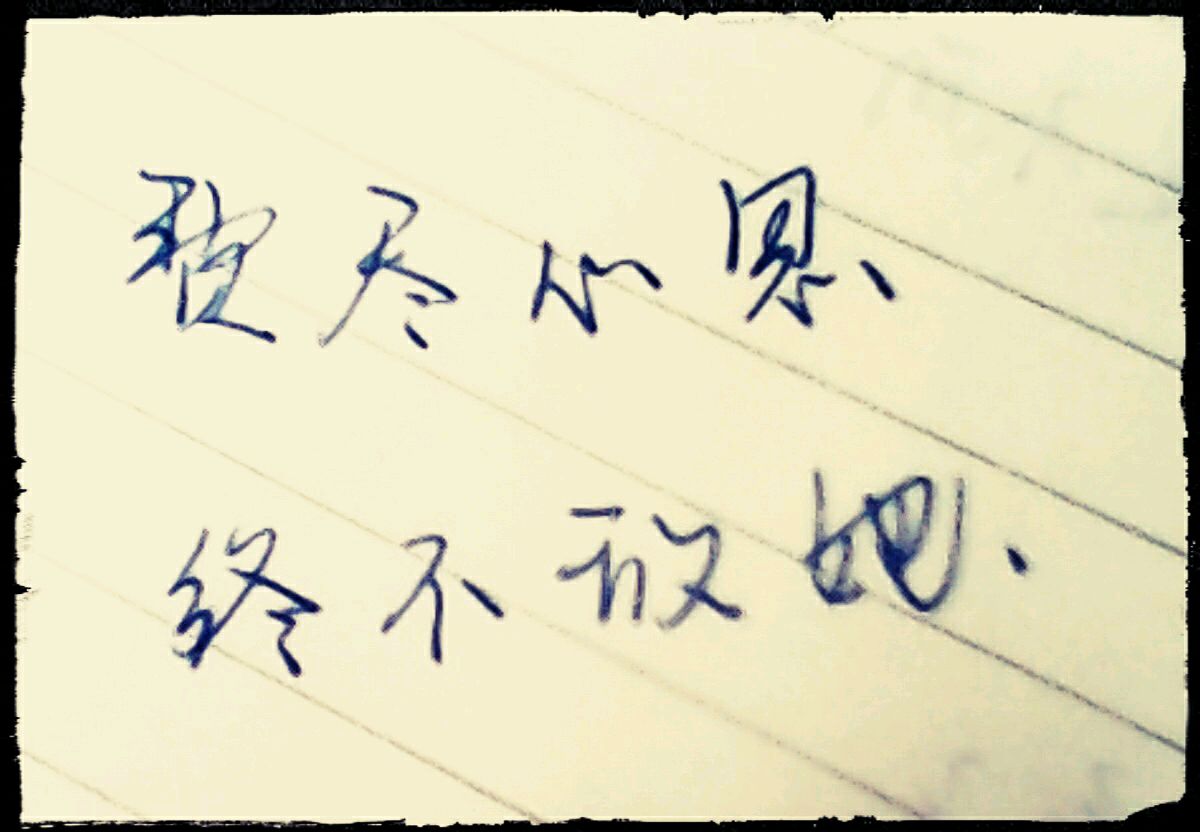 费尽心思
终不敌她、